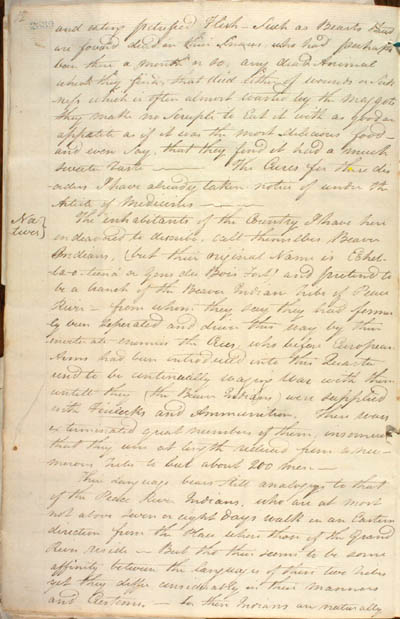 and eating putrified Flesh - Such as Bears
are found dead in their Snares, who had perhaps
been there a month or so, any dead Animal
which they find, that died either of wounds or Sick
ness which is often almost wasted by the maggots
they make no Scruple to Eat it with as good an
appetite as if it was the most delicious food -
and even Say, that they find it had a much
Sweeter taste The Cures for these dis
orders I have already taken notice of under the
Article of Medicines
Na
tives
The inhabitants of the Country I have here
endeavored to describe, call themselves Beaver
Indians, (but their original Name is
or Gens du Bois Fort) and pretend to
be a branch of the Beaver Indian tribe of Peace
River - from whom they say they had former
ly been Seperated and driven this way by their
inveterate enemies the Crees, who before European
Arms had been introduced into this Quarter
used to be continually waging War with them
untill they (the Beaver Indians) were Supplied
with Firelocks and Ammunition. These wars
exterminated great numbers of them, insomuch
that they were at length reduced from a nu-
merous tribe to but about 200 men -
Their language bears still analogy to that
of the Peace River Indians, who are at most
not above Seven or eight Days walk in an Eastern
direction from the place where those of the Grand
River reside - But tho there seems to be some
affinity between the languages of these two tribes
yet they differ considerably in their manners
and Customs - for these Indians are naturally